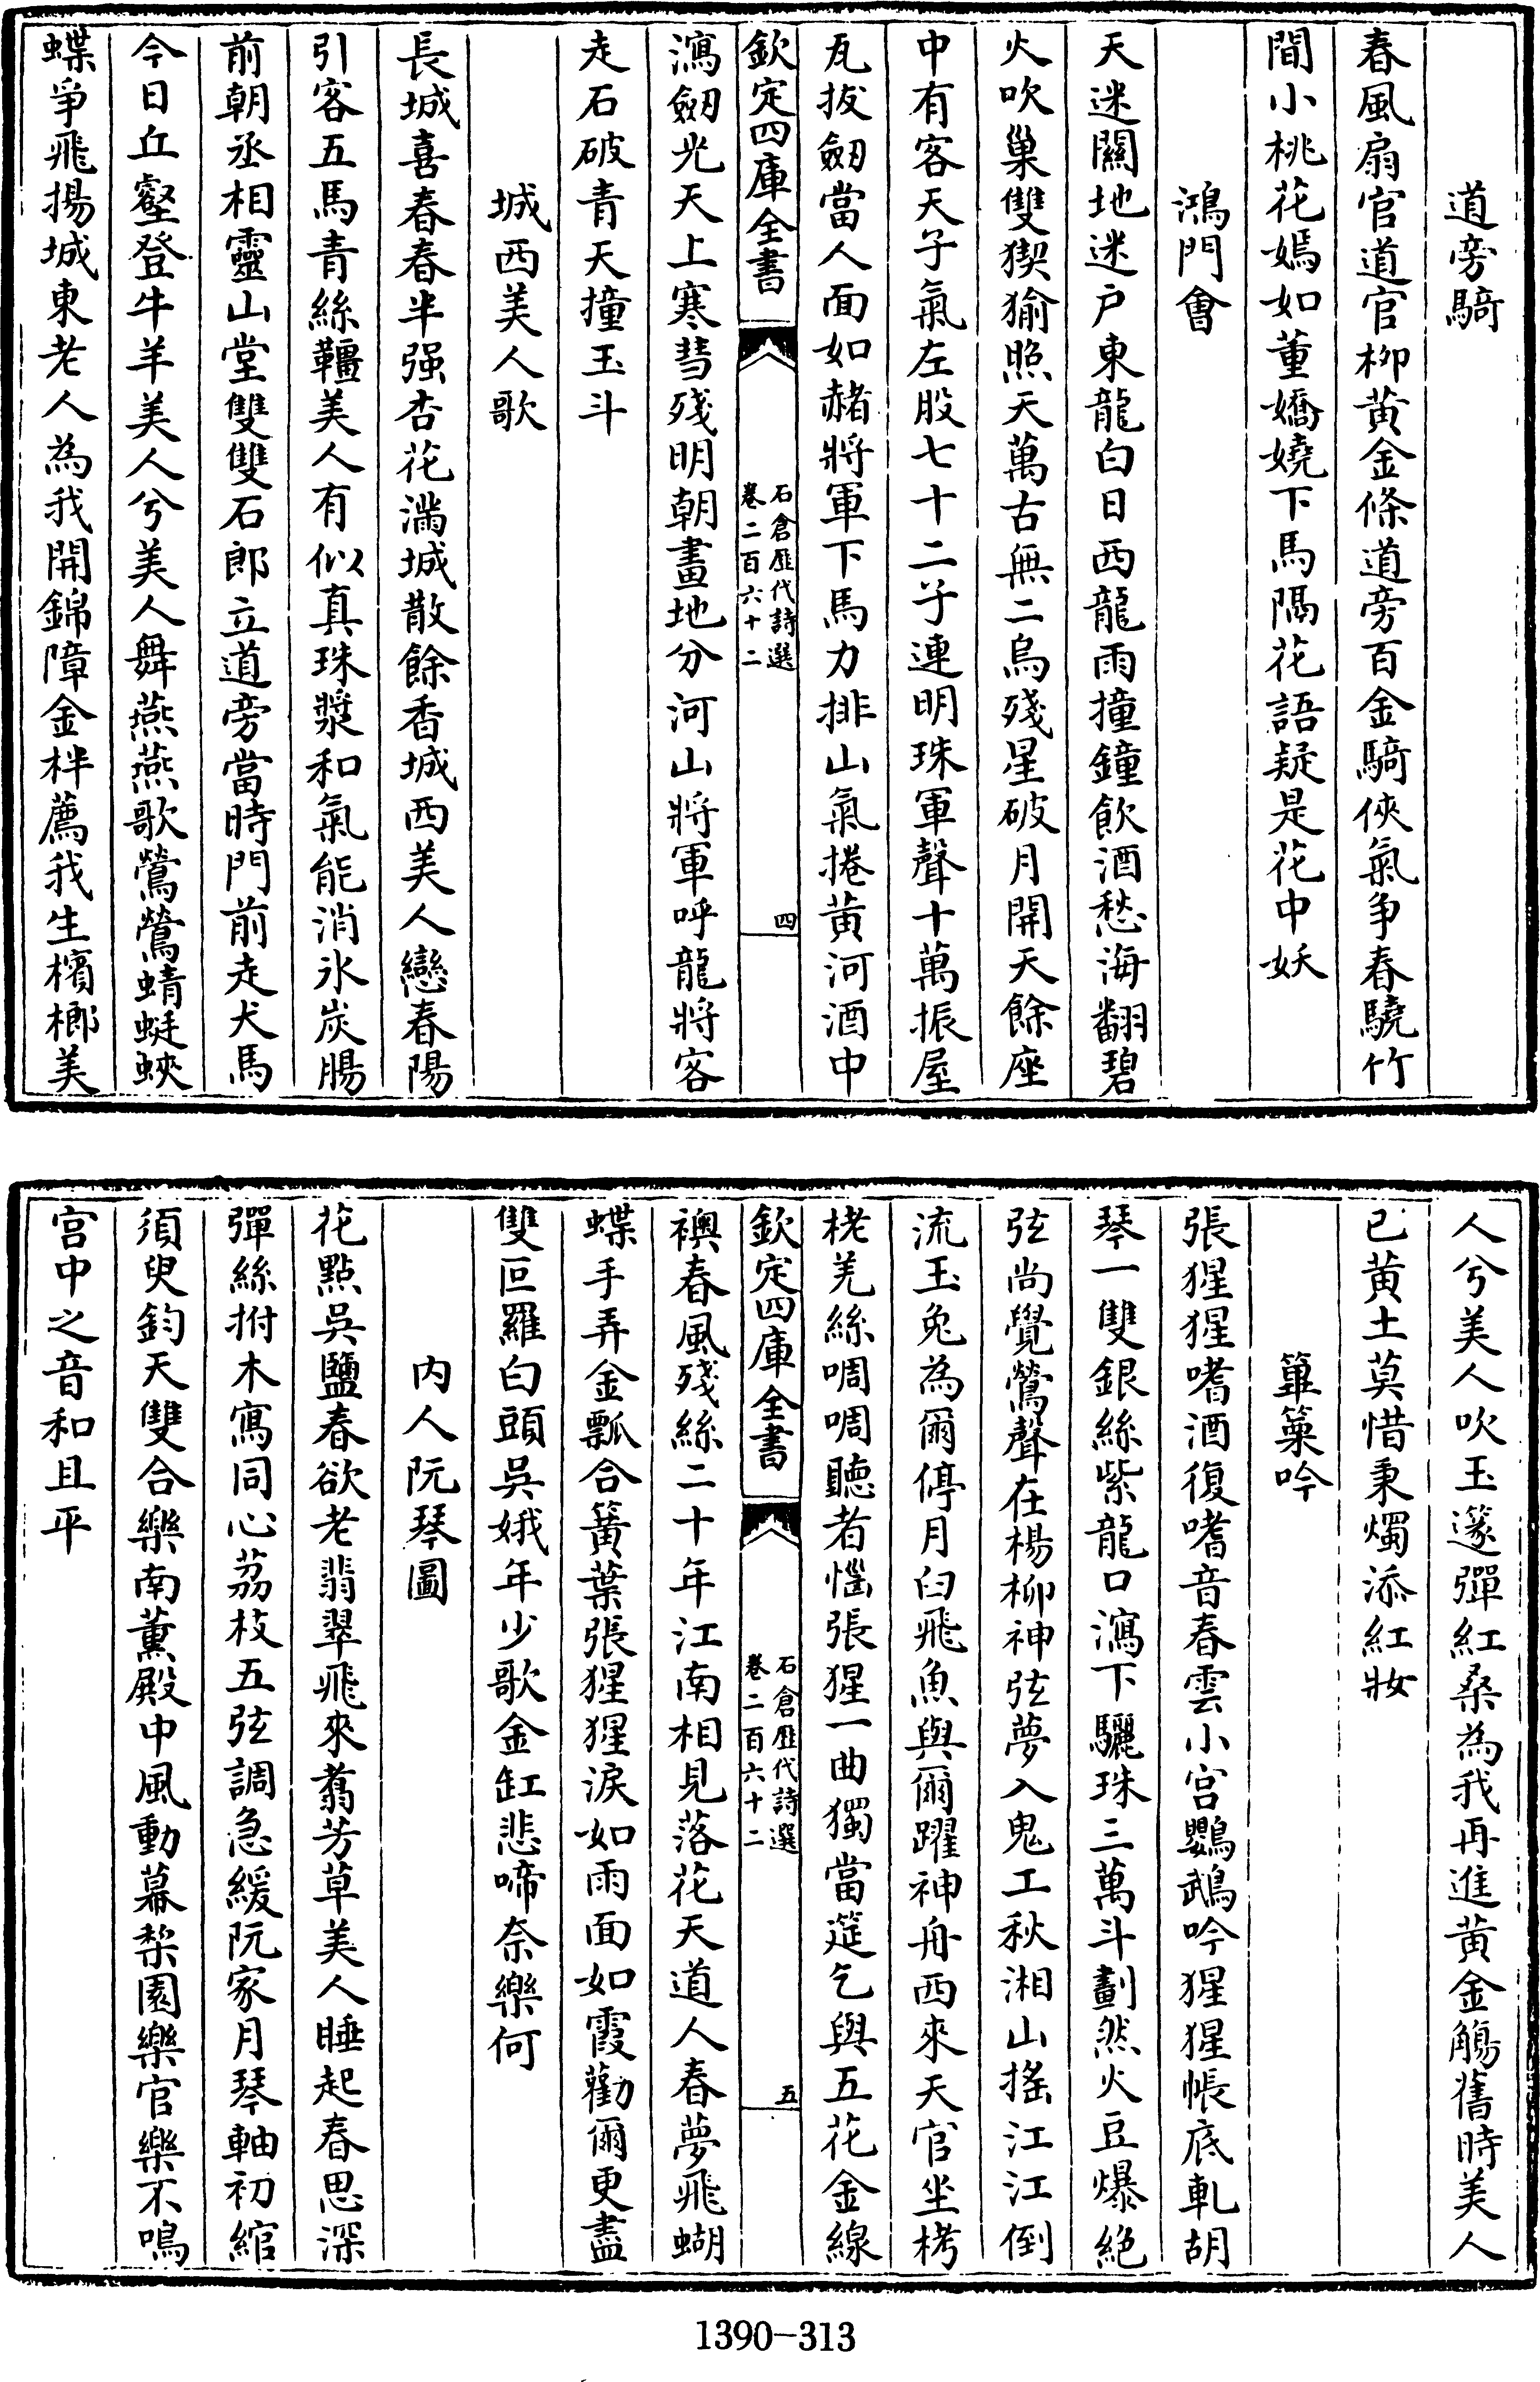 道旁騎
春風扇官道官柳黄金條道旁百金騎俠氣争春驍竹
間小桃花嫣如董嬌嬈下馬隔花語疑是花中妖
鴻門會
天迷關地迷户東龍白日西龍雨撞鐘飲酒愁海翻碧
火吹巢雙猰㺄照天萬古無二烏殘星破月開天餘座
中有客天子氣左股七十二子連明珠軍聲十萬振屋
瓦拔劒當人面如赭將軍下馬力排山氣捲黄河酒中
欽定四庫全書
石倉歷代詩選
卷二百六十二
四
瀉劒光天上寒彗殘明朝畫地分河山將軍呼龍將客
走石破青天撞玉斗
城西美人歌
長城喜春春半强杏花滿城散餘香城西美人戀春陽
引客五馬青絲韁美人有似真珠漿和氣能消氷炭腸
前朝丞相靈山堂雙雙石郎立道旁當時門前走犬馬
今日丘壑登牛羊美人兮美人舞燕燕歌鶯鶯蜻蜓蛺
蝶爭飛揚城東老人為我開錦障金柈薦我生檳榔美
人兮美人吹玉篴彈紅桑為我再進黄金觴舊時美人
已黄土莫惜秉燭添紅妝
篳篥吟
張猩猩嗜酒復嗜音春雲小宫鸚鵡吟猩猩帳底軋胡
琴一雙銀絲紫龍口瀉下驪珠三萬斗劃然火豆爆絶
弦尚覺鶯聲在楊柳神弦夢入鬼工秋湘山摇江江倒
流玉兔為爾停月臼飛魚與爾躍神舟西來天官坐栲
栳羌絲啁啁聽者惱張猩一曲獨當筵乞與五花金線
欽定四庫全書
石倉歷代詩選
卷二百六十二
五
襖春風殘絲二十年江南相見落花天道人春夢飛蝴
蝶手弄金瓢合簧葉張猩猩淚如雨面如霞勸爾更盡
雙叵羅白頭吳娥年少歌金缸悲啼奈樂何
内人阮琴圖
花點吳鹽春欲老翡翠飛來蒭芳草美人睡起春思深
彈絲拊木寫同心荔枝五弦調急緩阮家月琴軸初綰
須臾鈞天雙合樂南薰殿中風動幕棃園樂官樂不鳴
宫中之音和且平
1390-313